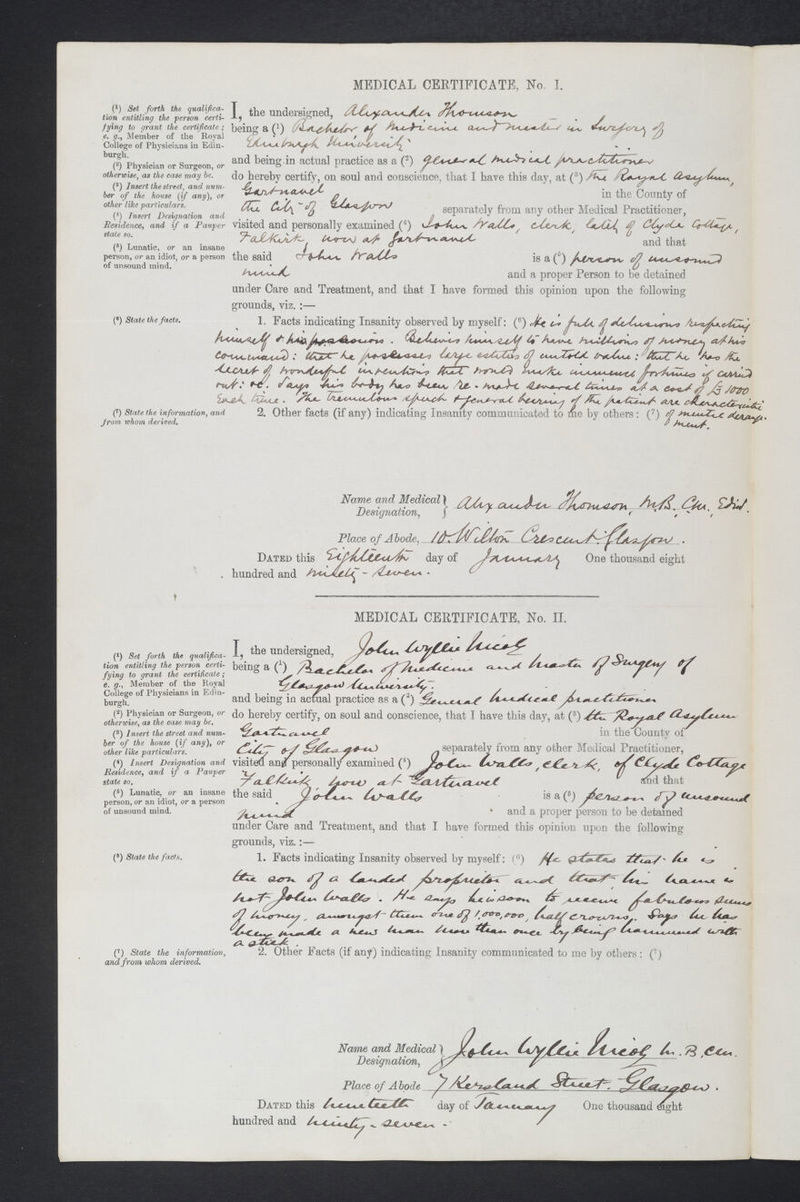 MEDICAL CERTIFICATE, No. I.
(1) Set forth the qualifica-
tion entitling the person certi-
fying to grant the certificate;
e. g., Member of the Royal
College of Physicians in Edin-
burgh.
(2) Physician or Surgeon, or
otherwise, as the case may be.
(3) Insert the street, and num-
ber of the house (if any), or
other like particulars.
(4) Insert Designation and
Residence, and if a Pauper
state so.
(5) Lunatic, or an insane
person, or an idiot, or a person
of unsound mind.
I, the undersigned, Alexander Thomson
being a (1) Bachelor of Medicine and Master in Surgery of
Edinburgh University
and being in actual practice as a (2) general medical practitioner
do hereby certify, on soul and conscience, that I have this day, at (3) the Royal Asylum,
Gartnavel in the County of
the City of Glasgow separately from any other Medical Practitioner,
visited and personally examined (4) John Walls, clerk, lately of Clyde Cottage,
Falkirk, now at Gartnavel and that
the said John Walls is a (5) person of unsound
mind and a proper Person to be detained
under Care and Treatment, and that I have formed this opinion upon the following
grounds, viz. :—
(6) State the facts.
1. Facts indicating Insanity observed by myself: (6) He is full of delusions respecting
himself & his possessions. Believes himself to have millions of money at his
command: that he possesses large estates of untold value: that he has the
secret of wonderful inventions that would make immense fortunes if carried
out: &c. Says his body has been re-made several times at a cost of £1000
Each time. The tremulous speech & general bearing of the patient are characteristic
of mental derange-
ment.
(7) State the information, and
from whom derived.
2. Other facts (if any) indicating Insanity communicated to me by others: (7)
Name and Medical Designation, Alexander Thomson, M.B. Cm. Edin.
Place of Abode, 10 Wilton Crescent. Glasgow.
DATED this Eighteenth day of January One thousand eight
hundred and ninety-seven.
MEDICAL CERTIFICATE, No. II.
(1) Set forth the qualifica-
tion entitling the person certi-
fying to grant the certificate;
e. g., Member of the Royal
College of Physicians in Edin-
burgh.
(2) Physician or Surgeon, or
otherwise, as the case may be.
(3) Insert the street and num-
ber of the house (if any), or
other like particulars.
(4) Insert Designation and
Residence, and if a Pauper
state so.
(5) Lunatic, or an insane
person, or an idiot, or a person
of unsound mind.
I, the undersigned, John Wyllie Nicol
being a (1) Bachelor of Medicine and Master of Surgery of
Glasgow University.
and being in actual practice as a (2) General Medical practitioner
do hereby certify, on soul and conscience, that I have this day, at (3) the Royal Asylum
Gartnavel in the County of
City of Glasgow separately from any other Medical Practitioner,
visited and personally examined (4) John Walls, clerk, of Clyde Cottage
Falkirk, now at Gartnavel and that
the said John Walls is a (5) person of unsound
mind and a proper person to be detained
under Care and Treatment, and that I have formed this opinion upon the following
grounds, viz. :—
(6) State the facts.
1. Facts indicating Insanity observed by myself: (6) He states that he is
the son of a landed proprietor and that his name is
not John Walls. He says he is soon to receive fabulous sums
of money, amongst them one of 1,000,000, half crowns. Says he has
been made a new man more than once by being hammered with
a stick.
(7) State the information,
and from whom derived.
2. Other Facts (if any) indicating Insanity communicated to me by others: (7)
Name and Medical Designation, John Wyllie Nicol M.B, Cm.
Place of Abode 7 Kersland Street. Glasgow.
DATED this nineteenth day of January One thousand eight
hundred and ninety-seven.